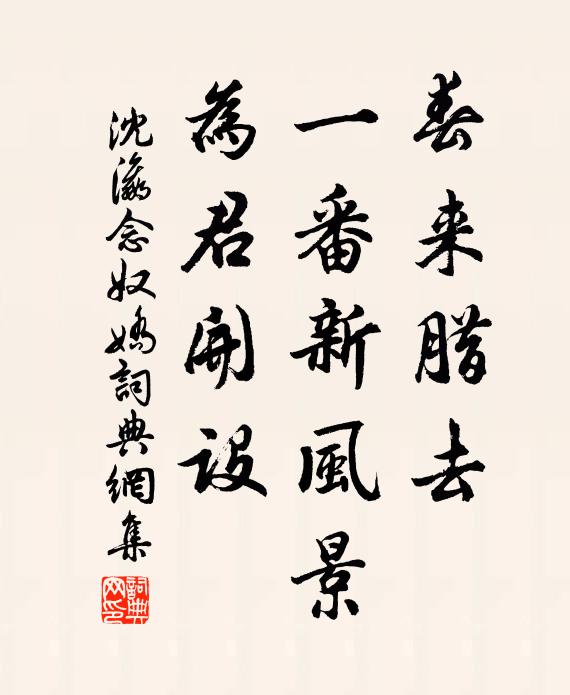 春来腊去
一番新風景
為君開設
沈瀛念奴嬌詞典網集
詞典网印